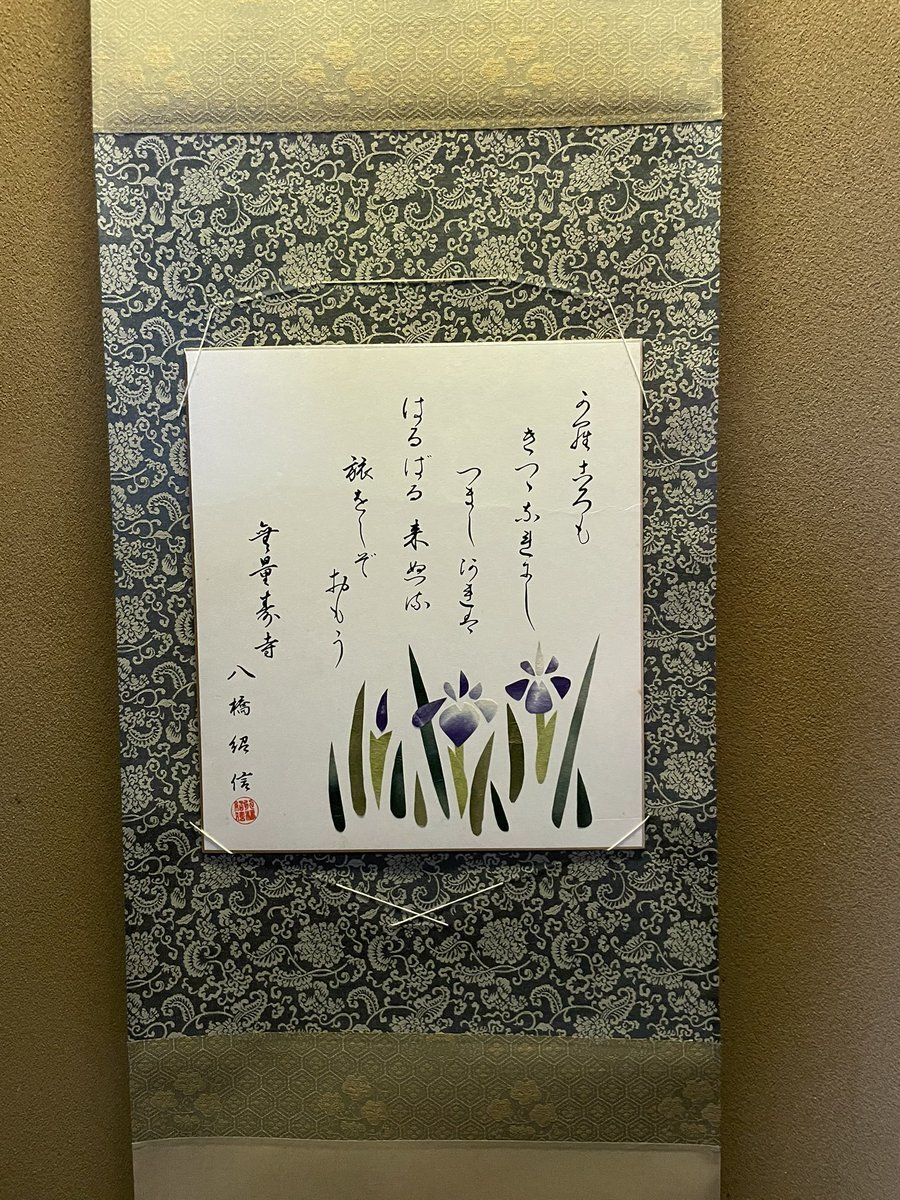 可羅ころも
きつゝなれにし
つましあれば
はるばる来ぬる
旅をしぞ
おもう
無量寿寺
八橋紹信